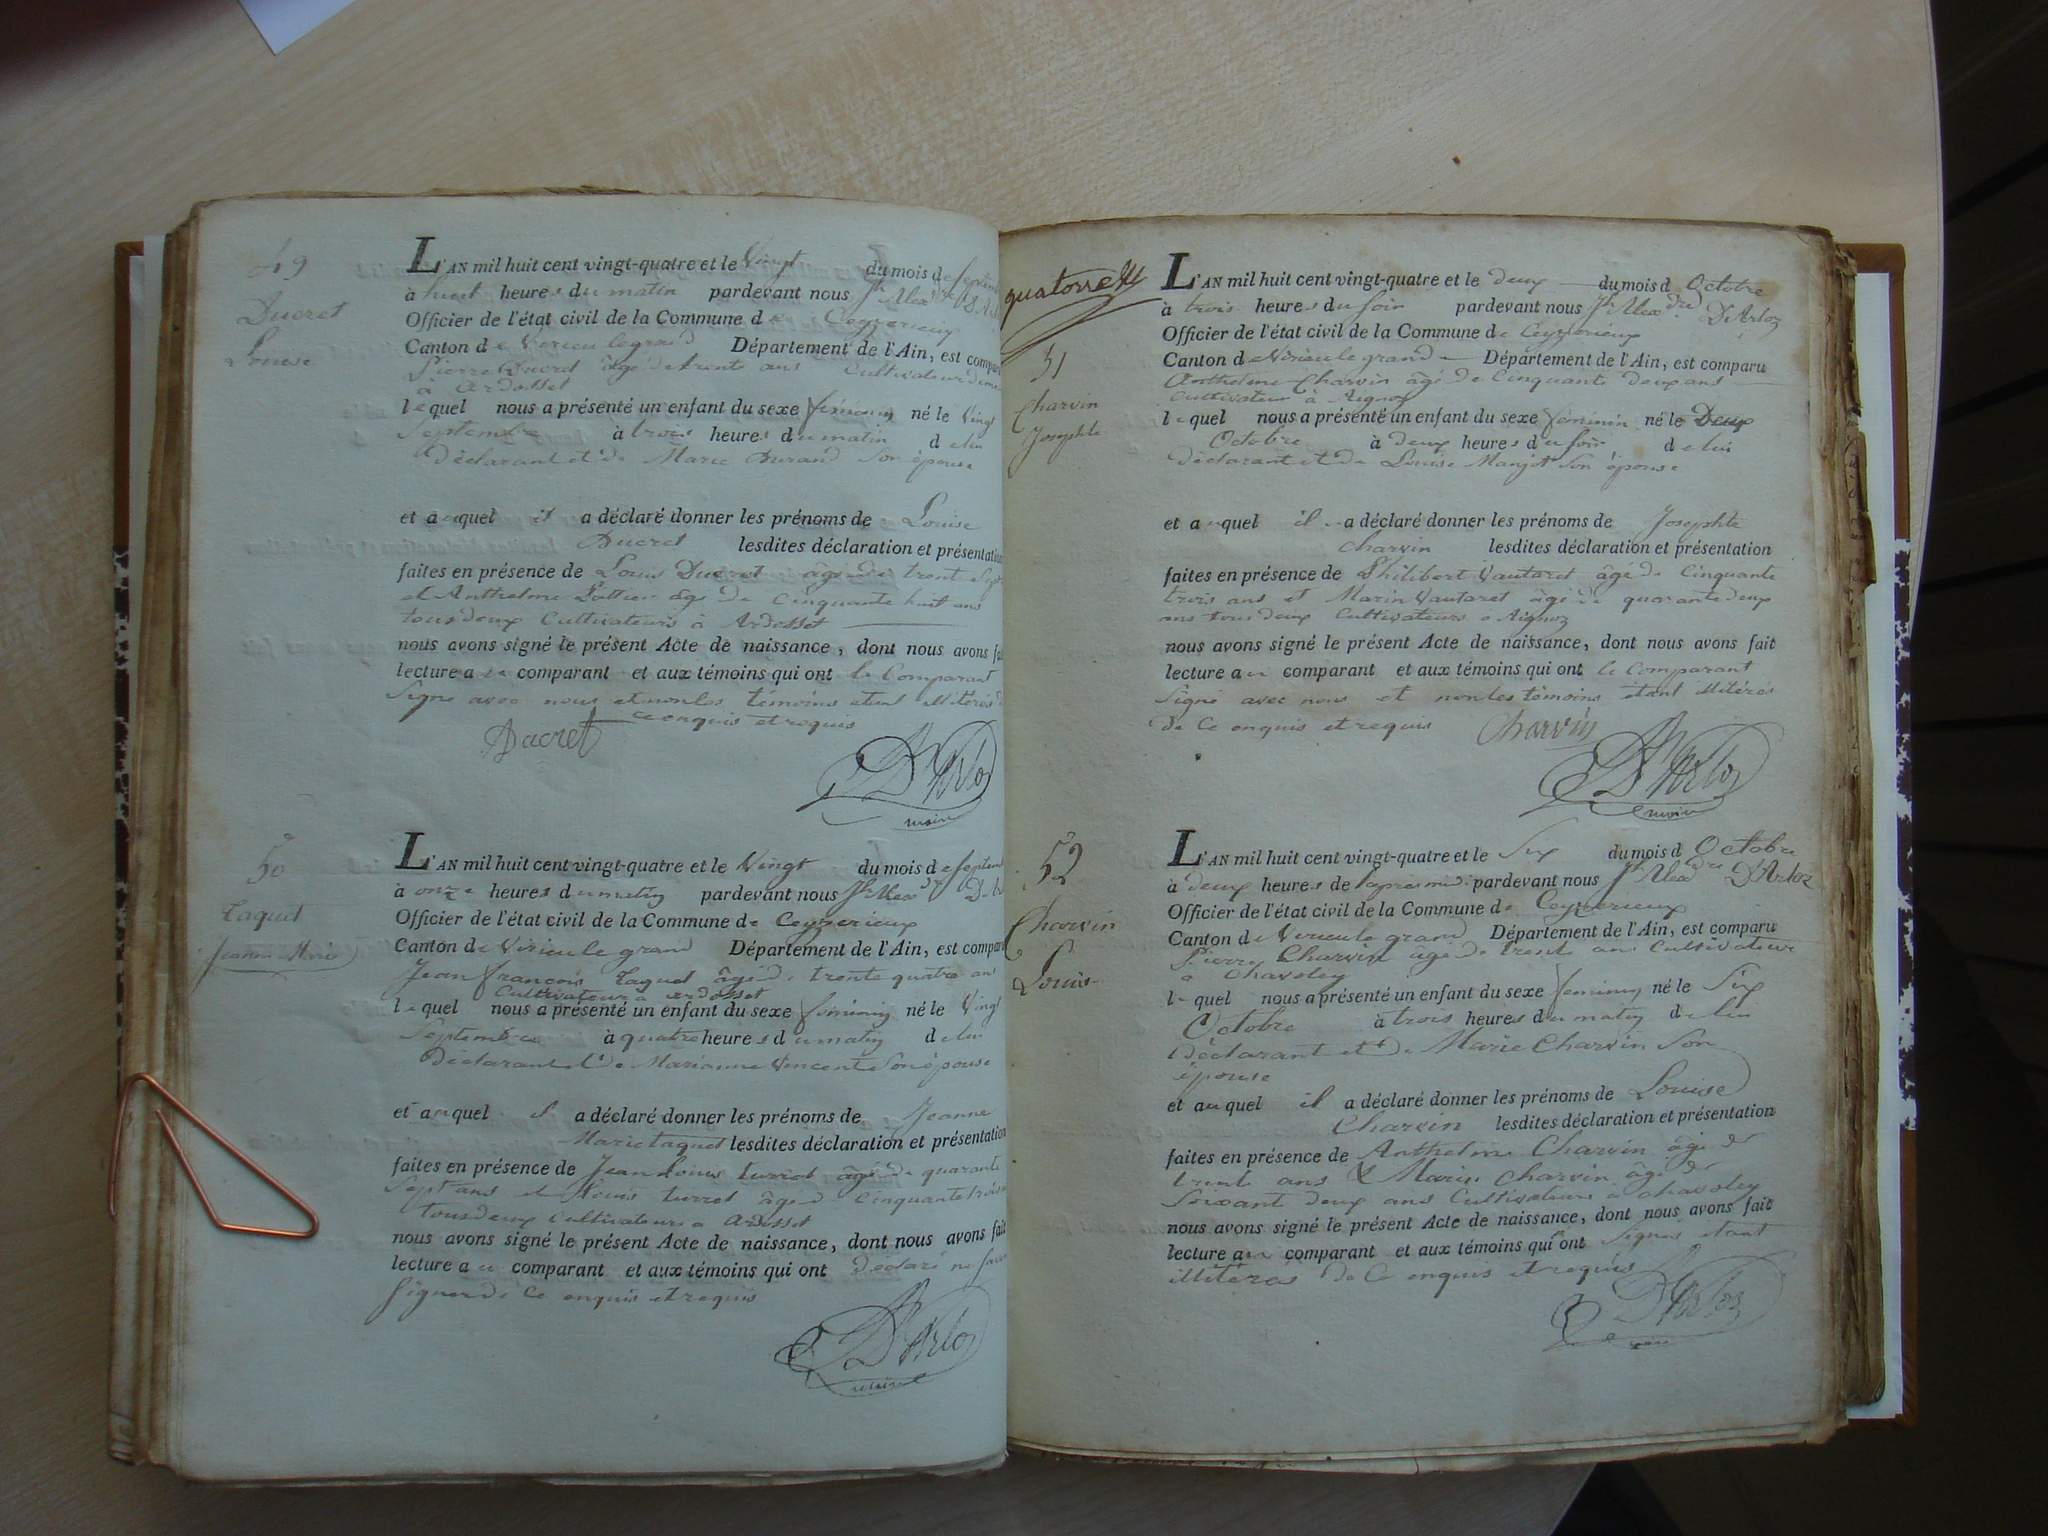 49
Ducret
Louise
L'AN mil huit cent vingt-quatre et le Vingt du mois de Septem
à huit heures du matin pardevant nous Jh Alexdre
Officier de l'état civil de la Commune de Ceyzerieux
Canton de Virieu le grand Département de l'Ain, est compar
Pierre Ducret âgé de trente ans Cultivateur deme
à Ardosset
lequel nous a présenté un enfant du sexe féminin né le Vingt
Septembre à trois heures du matin de lui
Déclarant et de Marie Durand Son épouse
et auquel il a déclaré donner les prénoms de Louise
Ducret lesdites déclaration et présentation
faites en présence de Louis Ducret âgé de trent Sept
et Anthelme Pottier âgé de Cinquante huit ans
tous deux Cultivateurs à Ardosset
nous avons signé le présent Acte de naissance, dont nous avons fai
lecture au comparant et aux témoins qui ont le Comparant
Signé avec nous et non les témoins étant illitérés d
ce enquis et requis
Ducret
D'Arloz
maire
50
Taquet
Jeanne Marie
L'AN mil huit cent vingt-quatre et le Vingt du mois de Septem
à onze heures du matin pardevant nous Jh Alexdre D'Ar
Officier de l'état civil de la Commune de Ceyzerieux
Canton de Virieu le grand Département de l'Ain, est compar
Jean françois Taquet âgé de trente quatre ans
Cultivateur a ardosset
lequel nous a présenté un enfant du sexe féminin né le Vingt
Septembre à quatre heures du matin de lui
Déclarant et de Marianne Vincent Son épouse
et auquel il a déclaré donner les prénoms de Jeanne
Marie Taquet lesdites déclaration et présentation
faites en présence de Jean Louis turret âgé de quarante
Sept ans et Louis turret âgé d Cinquante trois
tous deux Cultivateurs a Ardosset
nous avons signé le présent Acte de naissance, dont nous avons fait
lecture au comparant et aux témoins qui ont déclaré ne savoir
Signer de Ce enquis et requis
D'Arloz
maire
quatorze
51
Charvin
Josephte
L'AN mil huit cent vingt-quatre et le deux du mois d Octobre
à trois heures du soir pardevant nous Jh Alexdre D'Arloz
Officier de l'état civil de la Commune de Ceyzerieux
Canton de Virieu le grand Département de l'Ain, est comparu
Anthelme Charvin âgé de Cinquante deux ans
Cultivateur à Aignoz
lequel nous a présenté un enfant du sexe féminin né le Deux
Octobre à deux heures du soir de lui
Déclarant et de Louise Manjot Son épouse
et auquel il a déclaré donner les prénoms de Josephte
Charvin lesdites déclaration et présentation
faites en présence de Philibert Vautaret âgé de Cinquante
trois ans et Marin Vautaret âgé de quarante deux
ans tous deux Cultivateurs a Aignoz
nous avons signé le présent Acte de naissance, dont nous avons fait
lecture au comparant et aux témoins qui ont le Comparant
Signé avec nous et non les témoins étant illitérés
de Ce enquis et requis Charvin
D'Arloz
maire
52
Charvin
Louise
L'AN mil huit cent vingt-quatre et le Six du mois d Octobre
à deux heures de l'apresmidi pardevant nous Jh Alexdre D'Arloz
Officier de l'état civil de la Commune de Ceyzerieux
Canton de Virieu le grand Département de l'Ain, est comparu
Pierre Charvin âgé de trent ans Cultivateur
a Chavoley
lequel nous a présenté un enfant du sexe feminin né le Six
Octobre à trois heures du matin de lui
Déclarant et de Marie Charvin Son
épouse
et auquel il a déclaré donner les prénoms de Louise
Charvin lesdites déclaration et présentation
faites en présence de Anthelme Charvin âgé de
trent ans & Marin Charvin âgé de
Soixant deux ans Cultivateurs a Chavoley
nous avons signé le présent Acte de naissance, dont nous avons fait
lecture au comparant et aux témoins qui ont Signés etant
illitéres de Ce enquis et requis
D'Arloz
maire